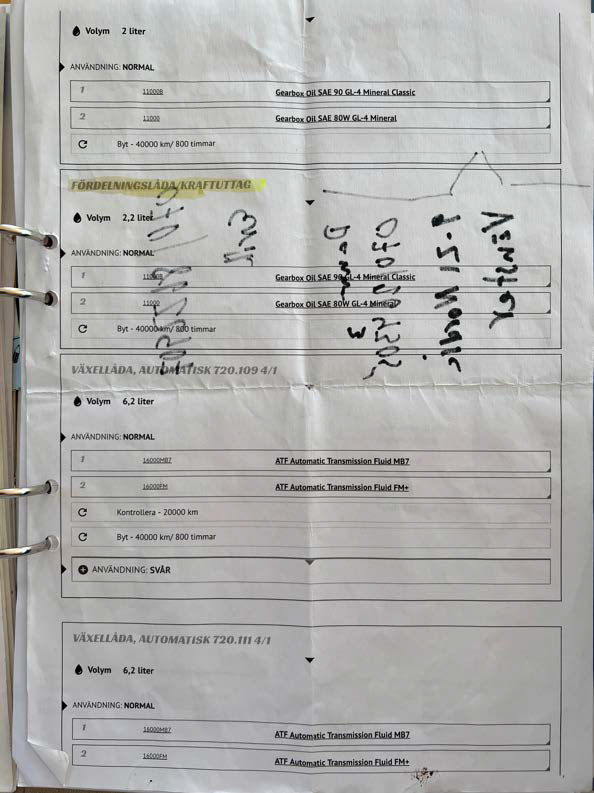 Volym 2 liter
ANVÄNDNING: NORMAL
1 11000B Gearbox Oil SAE 90 GL-4 Mineral Classic
2 11000 Gearbox Oil SAE 80W GL-4 Mineral
Byt - 40000 km/ 800 timmar
FÖRDELNINGSLÅDA/KRAFTUTTAG
Volym 2,2 liter
ANVÄNDNING: NORMAL
1 11000B Gearbox Oil SAE 90 GL-4 Mineral Classic
2 11000 Gearbox Oil SAE 80W GL-4 Mineral
Byt - 40000 km/ 800 timmar
VÄXELLÅDA, AUTOMATISK 720.109 4/1
Volym 6,2 liter
ANVÄNDNING: NORMAL
1 16000MB7 ATF Automatic Transmission Fluid MB7
2 16000FM ATF Automatic Transmission Fluid FM+
Kontrollera - 20000 km
Byt - 40000 km/ 800 timmar
ANVÄNDNING: SVÅR
VÄXELLÅDA, AUTOMATISK 720.111 4/1
Volym 6,2 liter
ANVÄNDNING: NORMAL
1 16000MB7 ATF Automatic Transmission Fluid MB7
2 16000FM ATF Automatic Transmission Fluid FM+